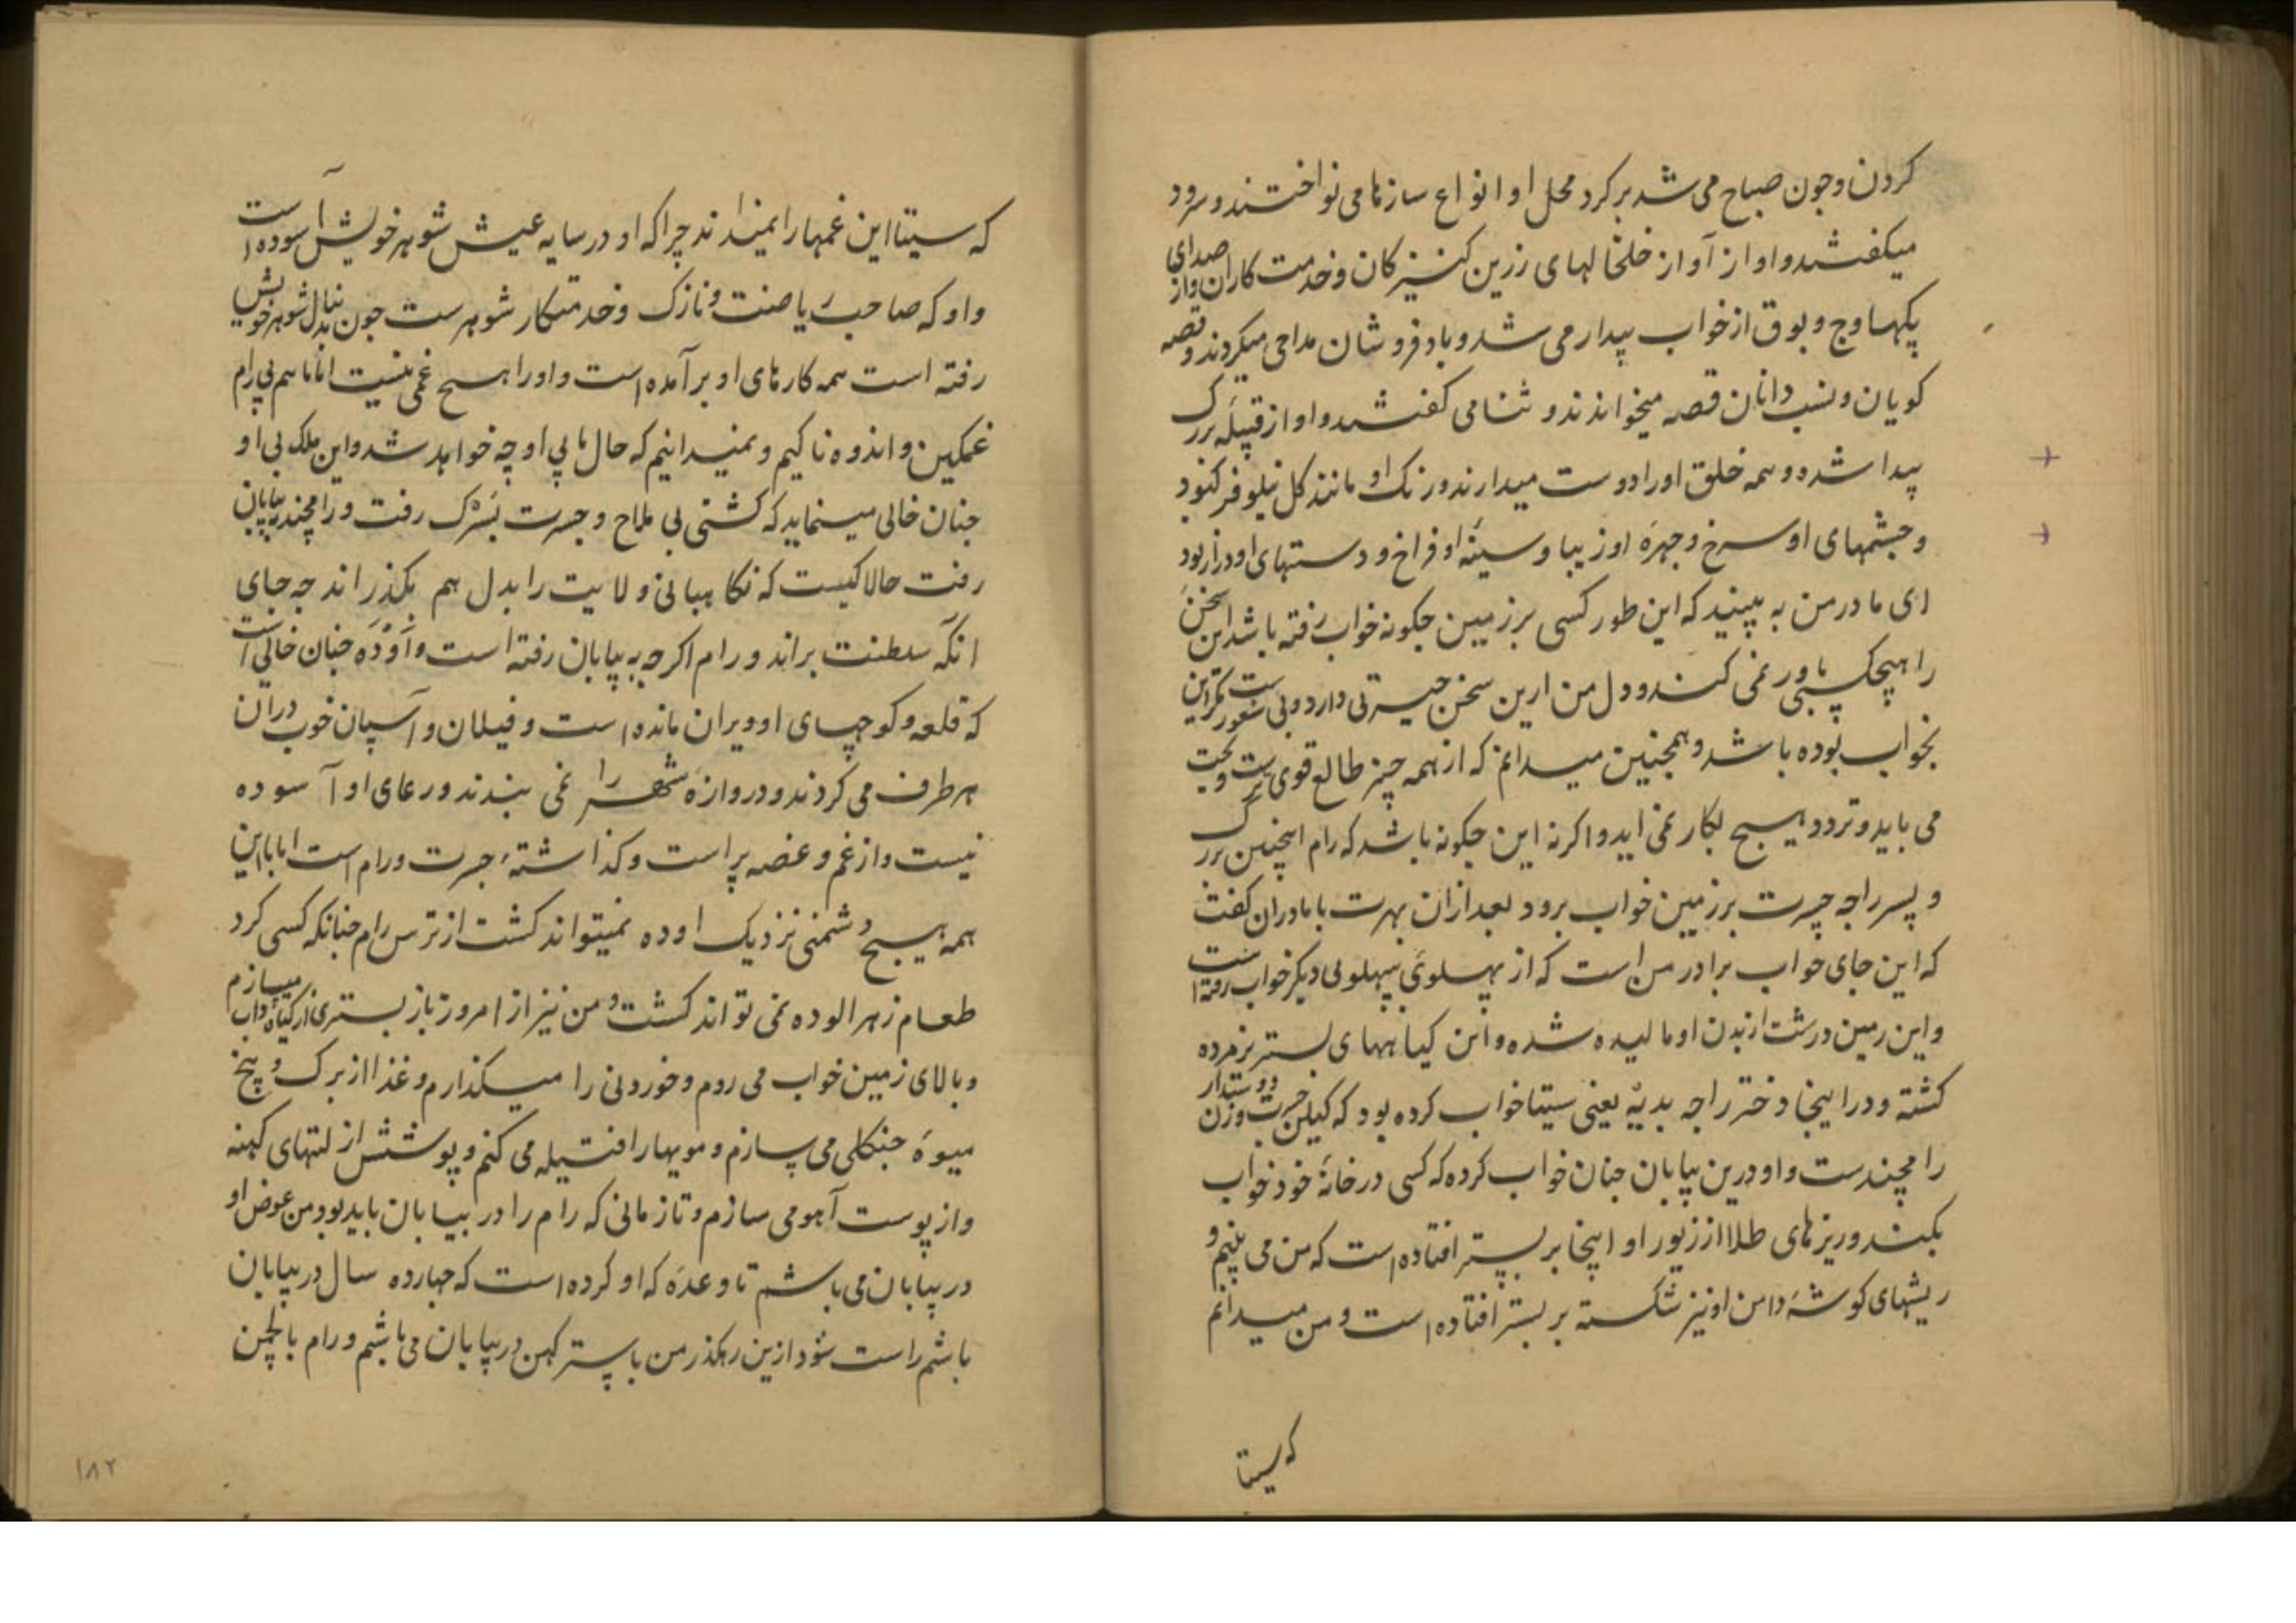 کردن وجون صباح می شد بر کرد محل او انواع سازها می نواختند و سرود
میکفتند و او از آواز خلخالهای زرین کنیزکان و خدمت کاران و از صدای
پکهاوج و بوق از خواب بیدار می شد و بادفروشان مداحی میکردند و قصه
کویان و نسب دانان قصه میخواندند و ثنا می کفتند و او از قبیله بزرک
پیدا شده و همه خلق او را دوست میدارند و رنک او مانند کل نیلوفر کبود
و جشمهای او سرخ و جهرۀ او زیبا و سینۀ او فراخ و دستهای او دراز بود
ای مادر من به بینید که این طور کسی بر زمین جکونه خواب رفته باشد این سخن
را هیچکس باور نمی کند و دل من ازین سخن حیرتی دارد و بی شعورست مکر این
بخواب بوده باشد و همجنین میدانم که از همه چیز طالع قوی ترست و بخت
می باید و تردد هیسج بکار نمی اید و اکرنه این جکونه باشد که رام اینچنین بزرک
و پسر راجه جسرت بر زمین خواب برود بعد ازان بهرت با مادران کفت
که این جای خواب برادر من است که از پهلوئی بپهلوی دیکر خواب رفته است
و این زمین درشت از بدن او مالیده شده و این کیاههای بستر پژمرده
کشته و در اینجا دختر راجه بدیه یعنی سیتا خواب کرده بود که کیلن جسرت و زن دوستدار
رامچندست و او درین بیابان جنان خواب کرده که کسی در خانۀ خود خواب
بکند و ریزهای طلا از زیور او اینجا بر بستر افتاده است که من می بینم و
ریشهای کوشۀ دامن او نیز شکسته بر بستر افتاده است و من میدانم
که سیتا
که سیتا این غمها را نمیداند چرا که او در سایه عیش شوهر خویش آسوده است
و او که صاحب ریاضت و نازک و خدمتکار شوهرست جون بدنبال شوهر خویش
رفته است همه کارهای او بر آمده است و او را هسیج غمی نیست اما ما هم بی رام
غمکین و اندوه ناکیم و نمیدانیم که حال ما بی او چه خواهد شد و این ملک بی او
جنان خالی مینماید که کشتی بی ملاح و جسرت بسرک رفت و رامچند به بیابان
رفت حالا کیست که نکاهبانی ولایت را بدل هم بکذراند جه جای
انکه سلطنت براند و رام اکرجه به بیابان رفته است و اوده جنان خالی است
که قلعه و کوچهای او ویران مانده است و فیلان و آسپان خوب دران
هر طرف می کردند و دروازۀ شهر را نمی بندند و رعای او آسوده
نیست و از غم و غصه پر است و کذاشتۀ جسرت و رام است اما با این
همه هیسج دشمنی نزدیک اوده نمیتواند کشت از ترس رام جنانکه کسی کرد
طعام زهر الوده نمی تواند کشت و من نیز از امروز باز بستری از کیاه و اب میسازم
و بالای زمین خواب می روم و خوردنی را میکذارم و غذا از برک و بیخ
میوۀ جنکلی می سازم و مویها را فتیله می کنم و پوشش از لتهای کهنه
و از پوست آهو می سازم و تا زمانی که رام را در بیابان باید بود من عوض او
در بیابان می باشم تا وعدۀ که او کرده است که جهارده سال در بیابان
باشم راست شود ازین رهکذر من با ستر کهن در بیابان می باشم و رام با لچمن
۱۸۲